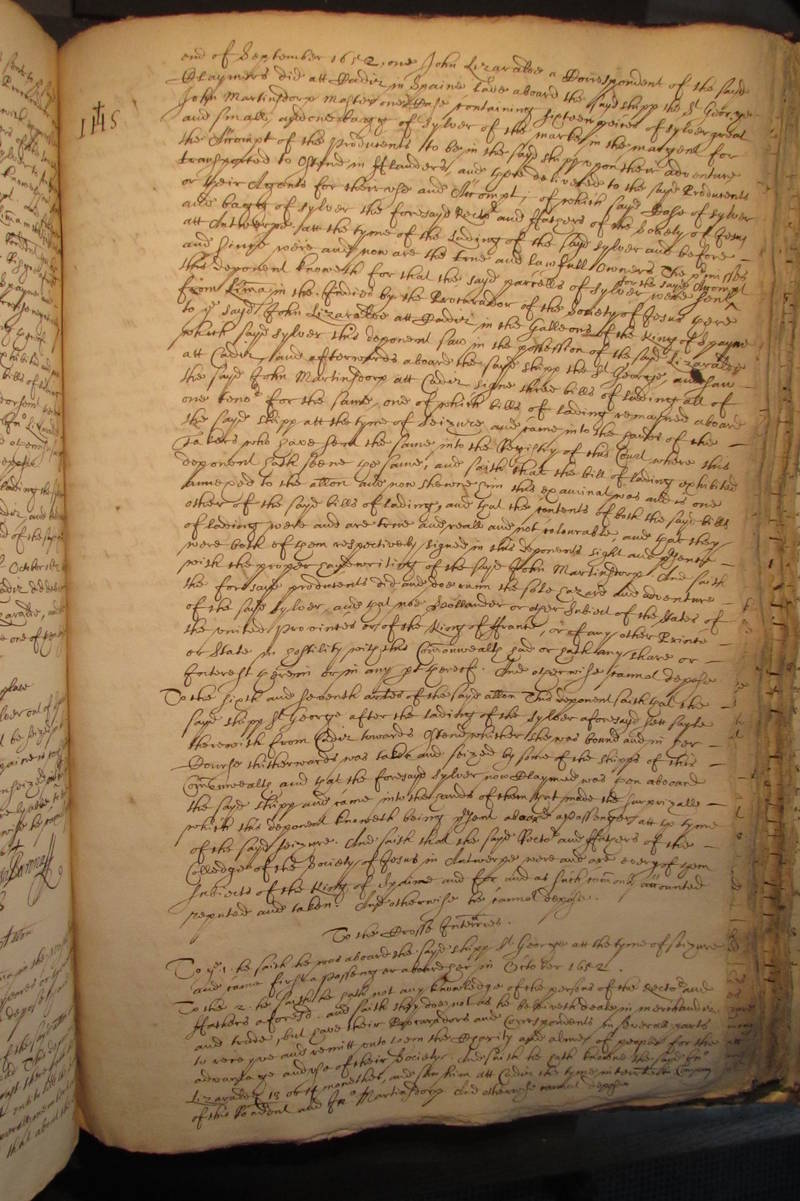 end of September 1652, one John Lizaraldee a Correspondent of the said
Claymers did att Cadiz in Spaine lade aboard the sayd shipp the St George
John Martinsdorp Master one Case containing sixteen peices of sylver great
and small, and one bagg of sylver of the marke in the margent for
IHS
the Accompt of the Producents to be in the sayd shipp upon their adventure
transported to Ostend in fflanders, and there delivered to the sayd Producents
or their Agents for their use and Accompt, of which sayd Case of sylver
and bagg of sylver the foresayd Rector and ffathers of the Society of Jesus
att Antwerpe att the tyme of the lading of the sayd sylver and before
and since were and now are the true and lawfull Owners The premisses
this deponent knoweth for that the sayd parcells of sylver were sent
for the sayd Accompt
from Lima in the Indies by the Procurador of the Society of Jesus there
to ye sayd John Lizaraldee att Cadiz in the Galleons of the King of Spayne
which sayd sylver this deponent saw in the possession of the sayd Lizaraldee
att Cadiz, and afterwards aboard the sayd shipp the St George, and saw
the sayd John Martinsdorp att Cadiz signe three bills of lading all of
one tenor for the same, one of which bills of lading remayned aboard
the sayd shipp att the tyme of seizure and came into the hands of the
takers who have sent the same into the Registry of this Court where this
deponent hath seene the same, and saith that the bill of lading exhibited
annexed to the allon and now shewne him this examinat was and is one
other of the sayd bills of lading, and that the contents of both the sayd bills
of lading were and are true and reall and not colourable, and that they
were both of them respectively signed in this deponents sight and presence
with the proper handwriting of the sayd John Martinsdorp And saith
the foresayd producents did and doe runn the sole hazard and adventure
of the sayd sylver, and that noe Hollander or other Subiect of the States of
the united Provinces or of the King of ffrance, or of any other Prince
or State in hostility with this Commonwealth had or hath any share or
Interest therein or in any pt thereof. And otherwise cannot depose
To the sixth and seventh articles of the sayd allon This deponent saith that the
sayd shipp St George after the lading of the sylver aforesayd sett sayle
therewith from Cadiz towards Ostend whither shee was bound and in her
Course thitherwards was taken and seized by some of the shipps of this
Commonwealth, and that the foresayd sylver now Claymed was then aboard
the sayd shipp and came into the hands of them that made the surprizall
which this deponent knoweth being present aboard a passenger att the tyme
of the sayd seizure. And saith that the sayd Rector and ffathers of the
Colledge of the Society of Jesus in Antwerpe were and are every of them
Subiects of the King of Spaine and for and as such comonly accounted
reputed and taken. And otherwise he cannot depose.
To the Crosse Interries.
To ye 1. he saith he was aboard the sayd shipp St George att the tyme of seizure
and came for a passenger aboard her in October 1652.
To the 2. he saith he hath not any knowledge of the persons of the Rector and
ffathers aforesd. and saith they doe not as he beleiveth deale in merchandize
and trade, but have their Procuradors and Correspondents in severall parts
to receyve and remitt unto them the Charity and almes of people for the
advantage and use of their Society. And saith he hath knowne the sayd Jno
Lizaraldee 13 or 14 moneths, and saw him att Cadiz the tyme
of this Pondent and Jno Martinsdorp And otherwise cannot depose